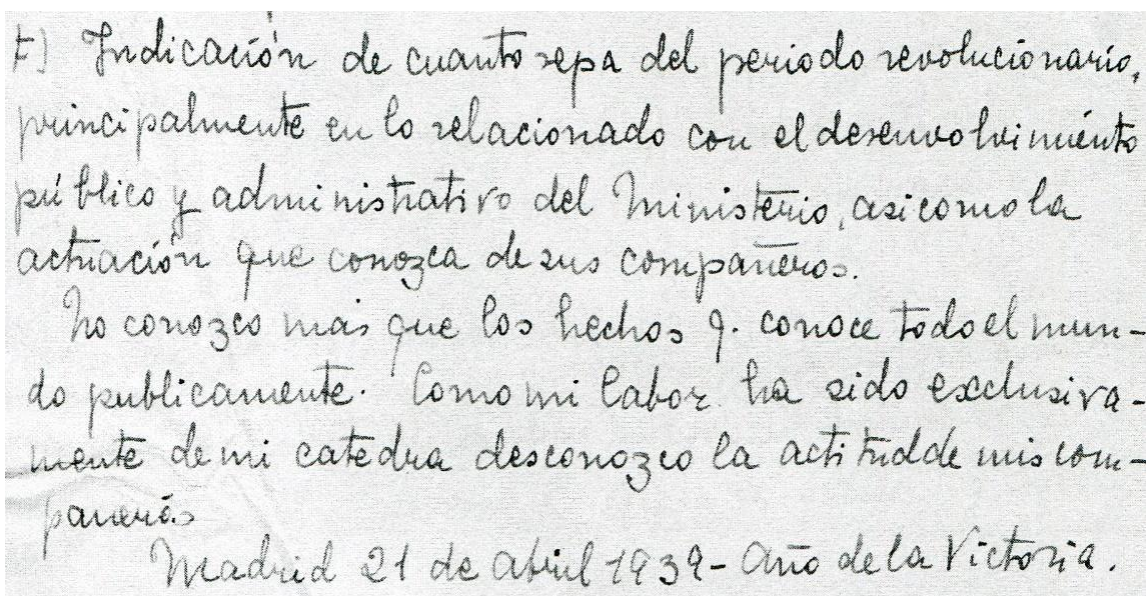 t) Indicación de cuanto sepa del periodo revolucionario,
principalmente en lo relacionado con el desenvolvimiento
público y administrativo del Ministerio, asi como la
actuación que conozca de sus compañeros.
No conozco mas que los hechos q. conoce todo el mun-
do publicamente. Como mi labor ha sido exclusiva-
mente de mi catedra desconozco la actitud de mis com-
pañeros
Madrid 21 de Abril 1939 - Año de la Victoria.